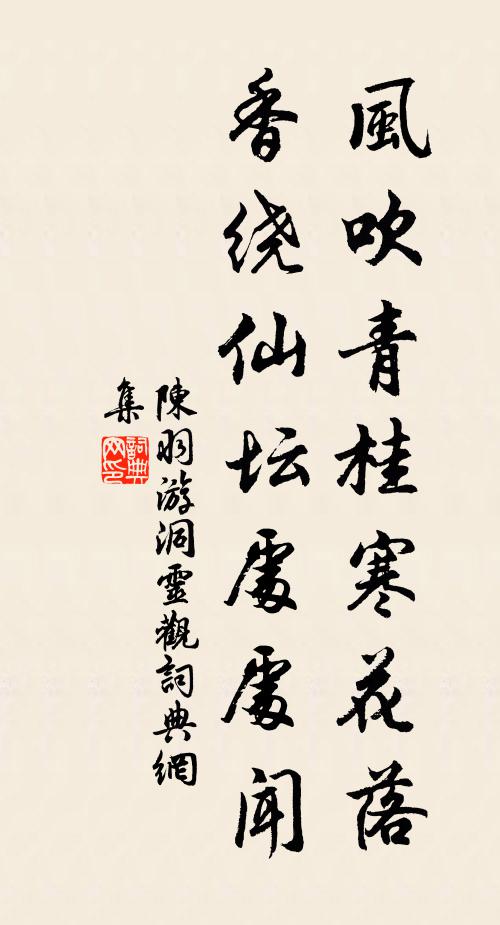 風吹青桂寒花落
香绕仙坛處處闻
陳羽游洞靈觀詞典網
集
詞典网印